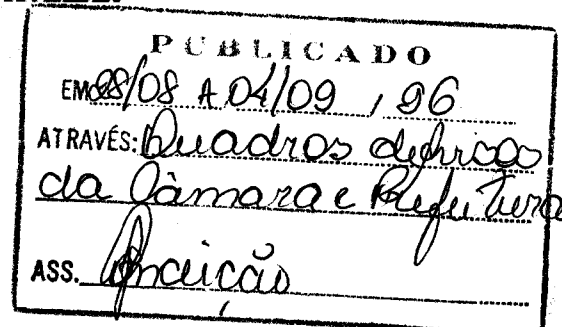 PUBLICADO
EM 28/08 A 04/09 / 96
ATRAVÉS: Quadros de avisos
da Câmara e Prefeitura
ASS. Conceição